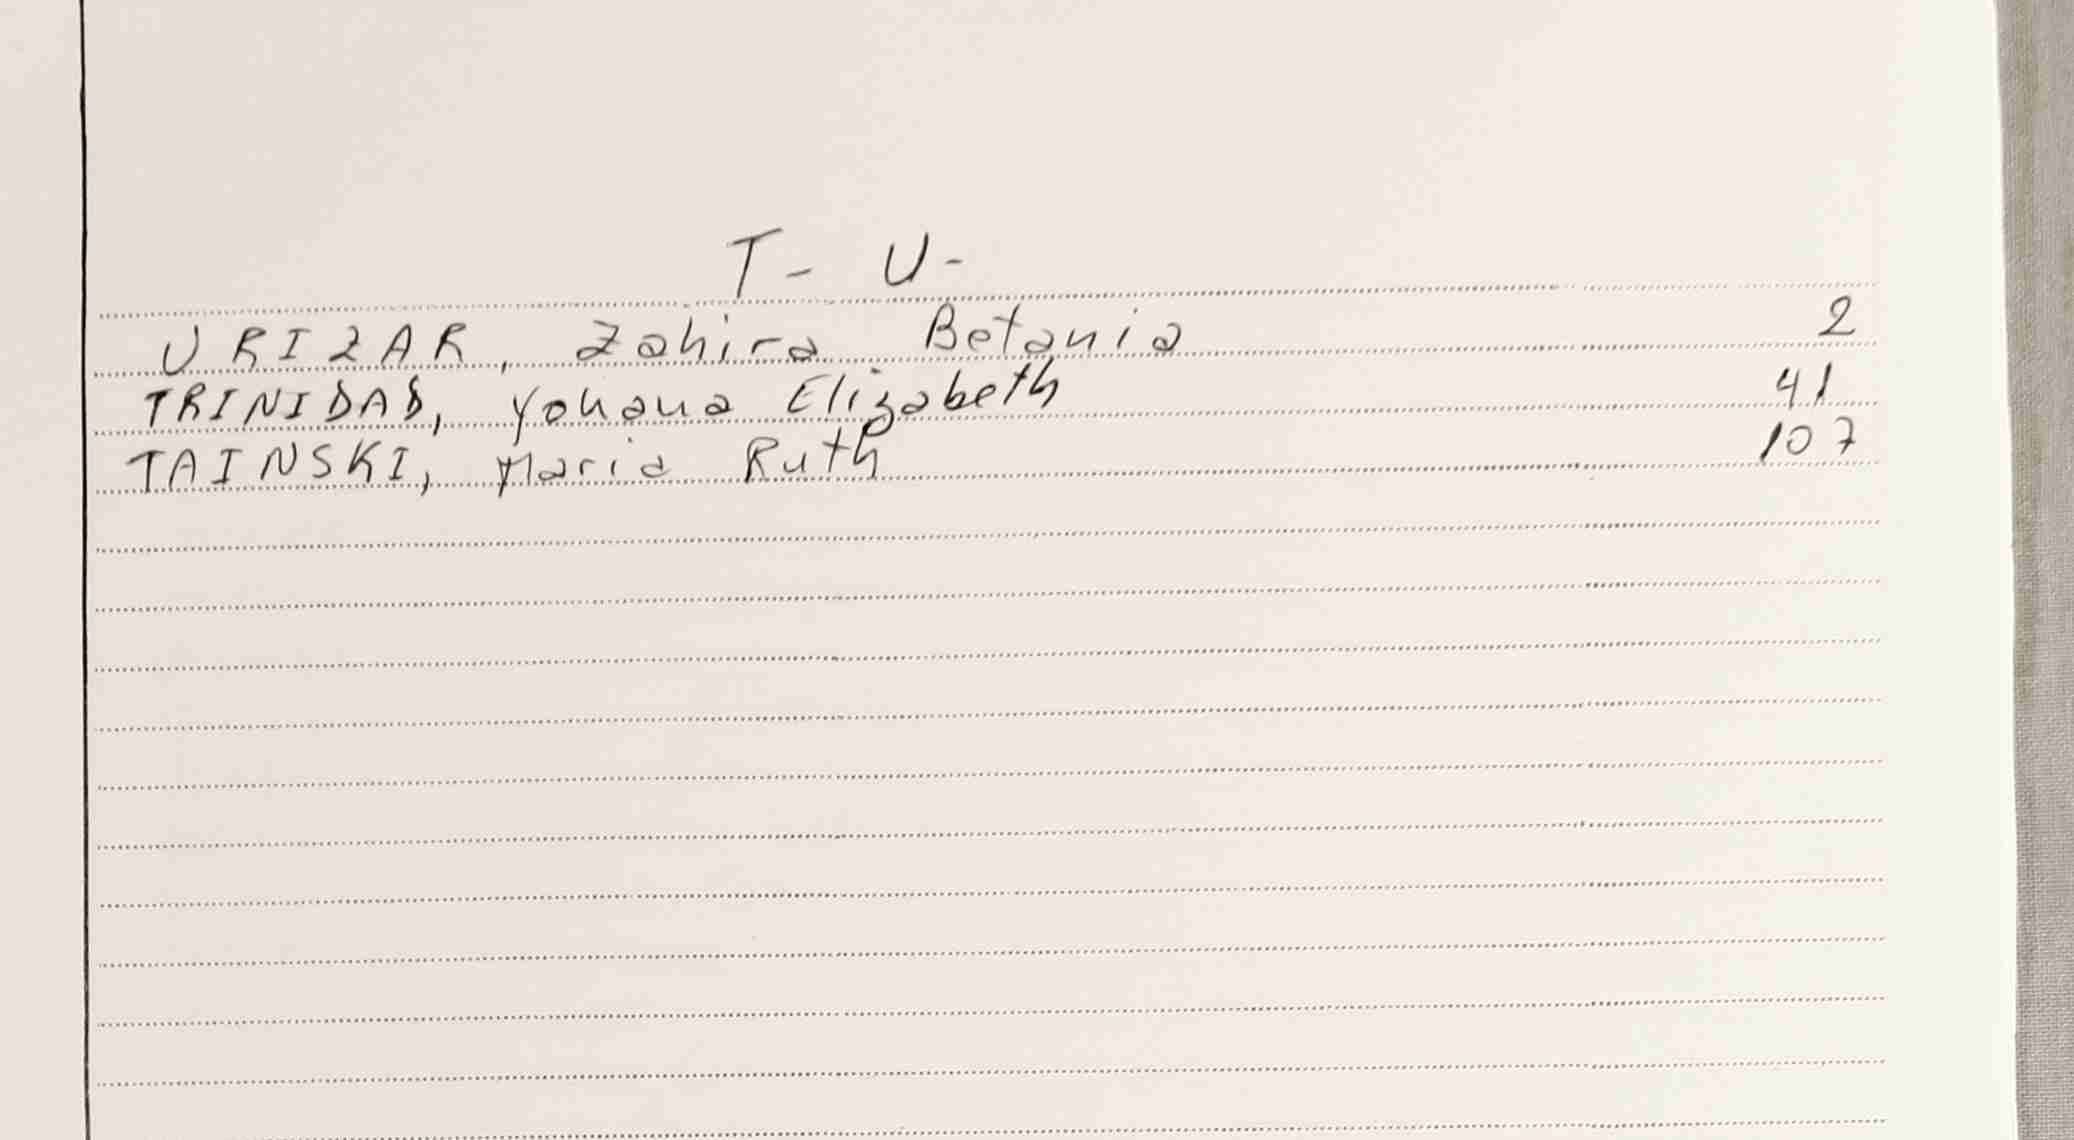 T - U -
URIZAR, Zahira Betania 2
TRINIDAD, Yohana Elizabeth 41
TAINSKI, Maria Ruth 107